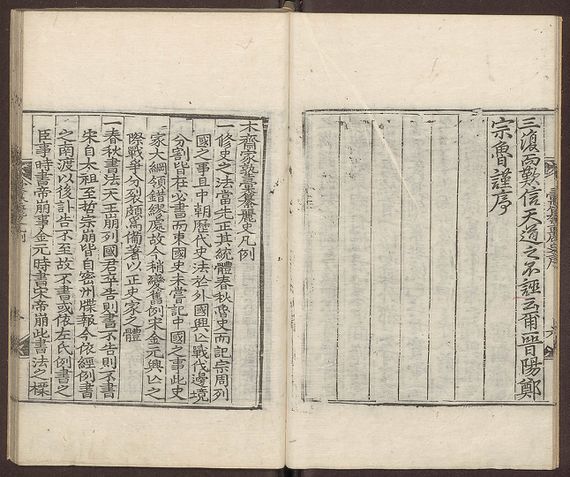 三復而歎信天道之不誣云爾晉陽鄭
宗魯謹序
木齋家塾彙纂麗史凡例
一修史之法當先正其統體春秋魯史而記宗周列
國之事且中朝歷代史法於外國興亡戰伐邊境
分割皆在必書而東國史未嘗記中國之事此史
家大綱領錯繆處故今稍變舊例宋金元興亡之
際戰爭分裂頗爲備著以正史家之體
一春秋書法天王崩列國君卒告則書不告則不書
宋自太祖至哲宗崩皆自密州牒報今依經例書
之南渡以後訃告不至故不書或依左氏例書之
臣事時書帝崩事金元時書宋帝崩此書法之一㨾